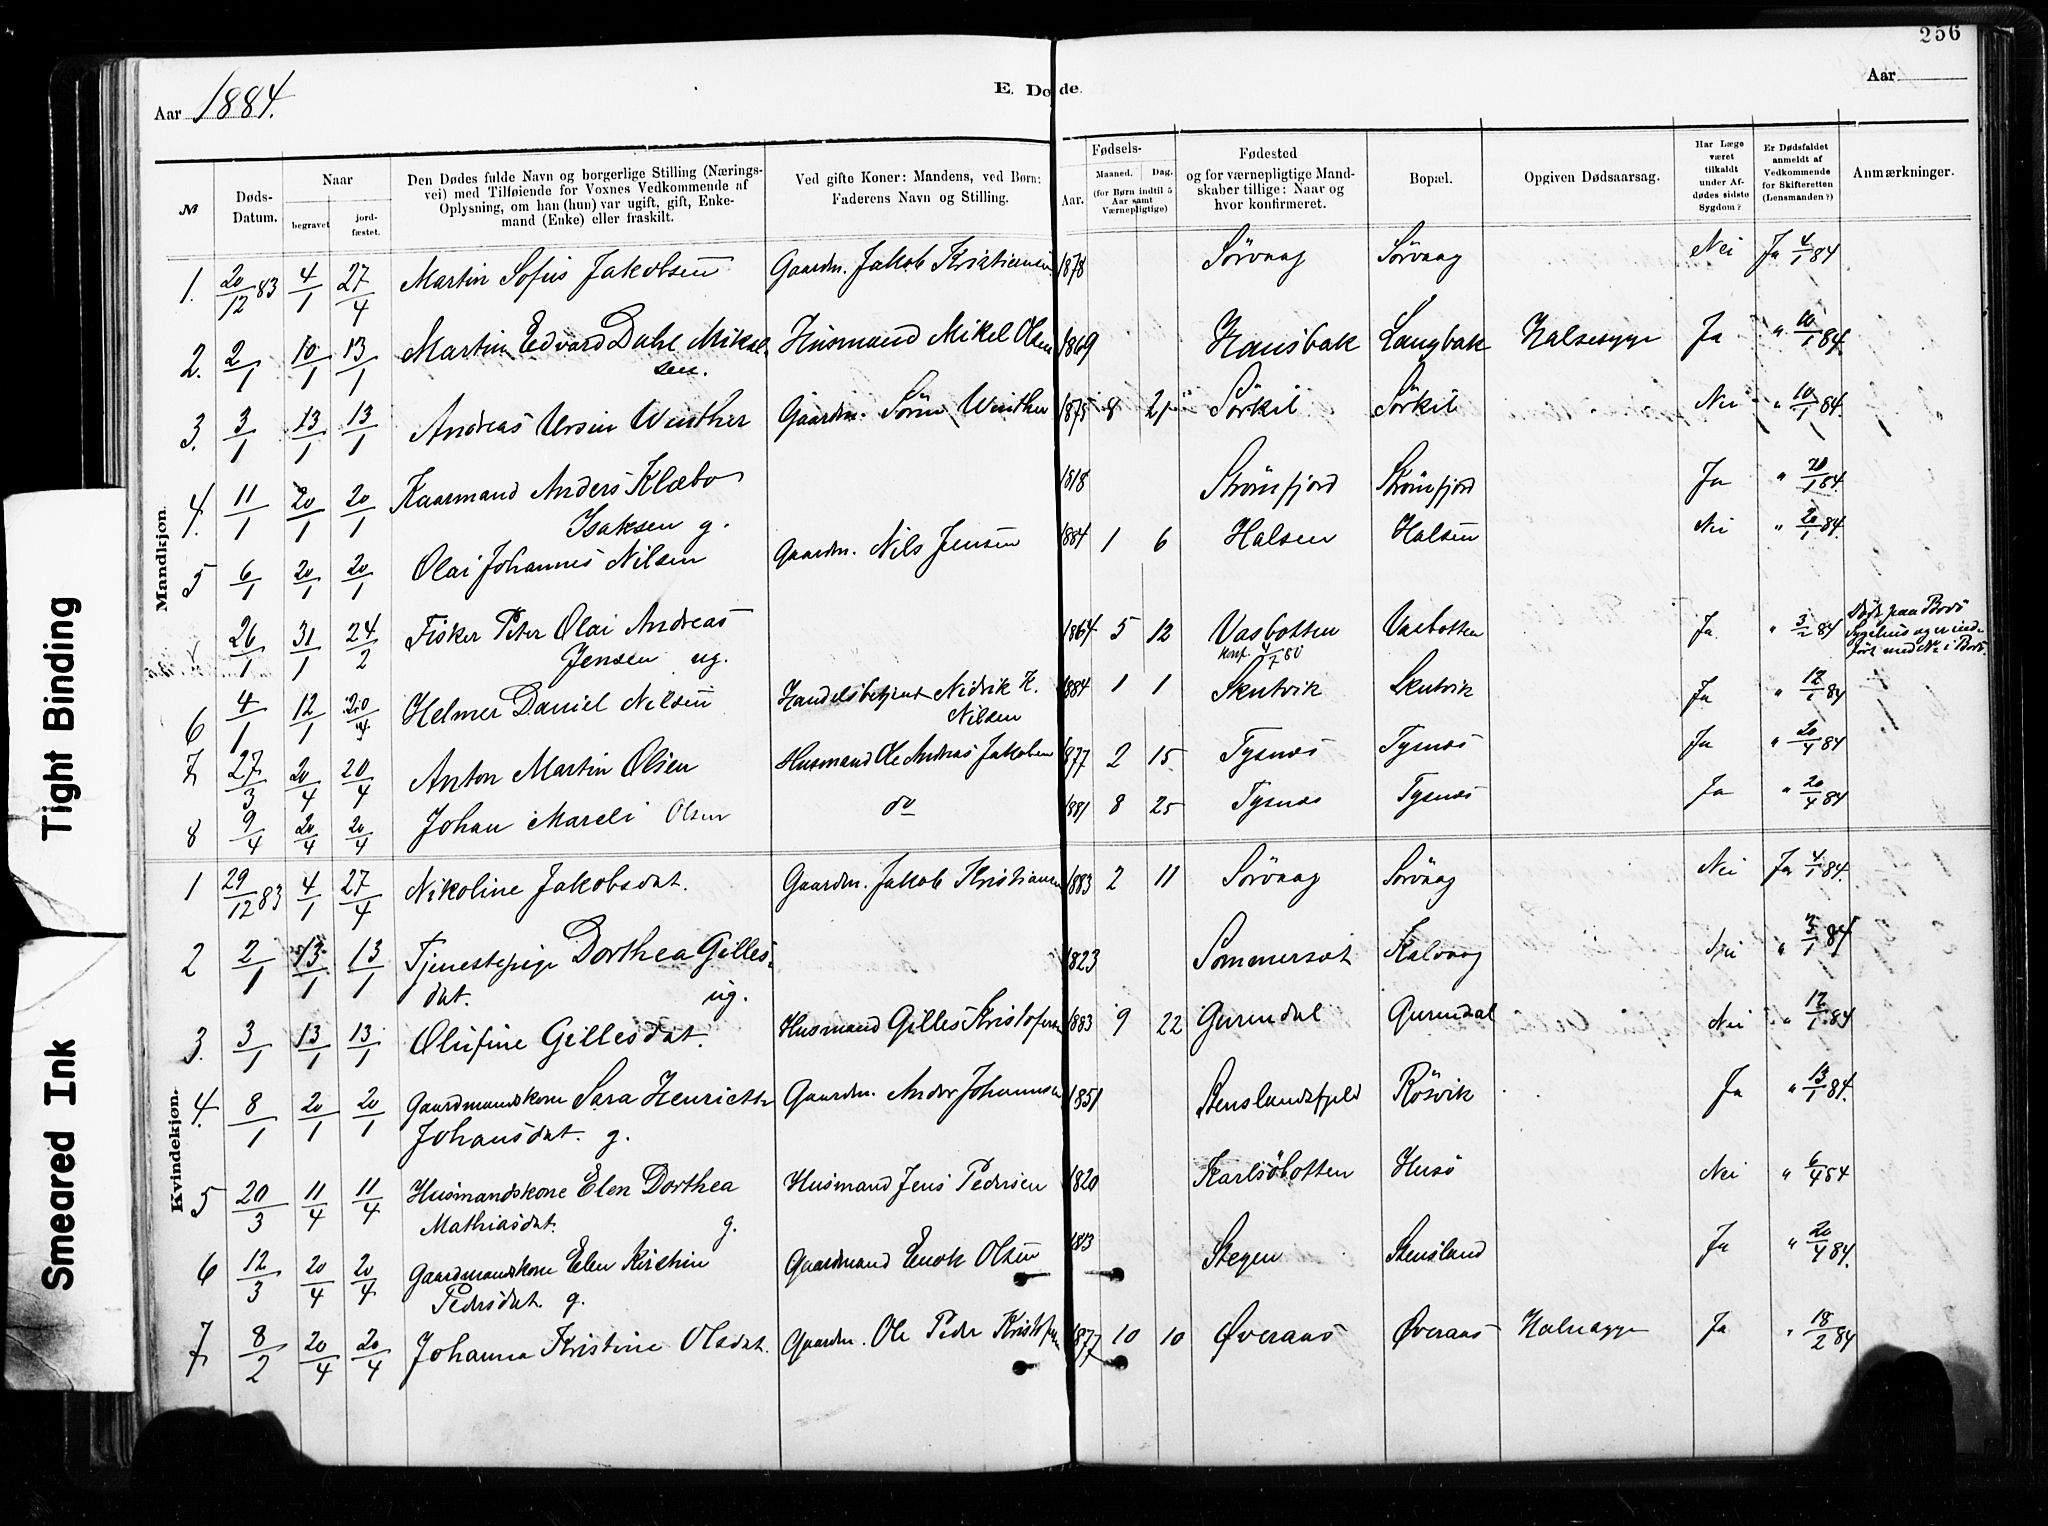 256
Aar 1884.
E. Døde.
Aar
№
Døds-Datum.
Naar
begravet
jordfæstet.
Den Dødes fulde Navn og borgerlige Stilling (Nærings-
vei) med Tilføiende for Voxnes Vedkommende af
Oplysning, om han (hun) var ugift, gift, Enke-
mand (Enke) eller fraskilt.
Ved gifte Koner: Mandens, ved Børn:
Faderens Navn og Stilling.
Fødsels-
Aar.
Maaned. Dag.
(for Børn indtil 5
Aar samt
Værnepligtige)
Fødested
og for værnepligtige Mand-
skaber tillige: Naar og
hvor konfirmeret.
Bopæl.
Opgiven Dødsaarsag.
Har Læge
været
tilkaldt
under Af-
dødes sidste
Sygdom?
Er Dødsfaldet
anmeldt af
Vedkommende
for Skifteretten
(Lensmanden?)
Anmærkninger.
Mandkjøn.
1. 20/12 83 4/1 27/4 Martin Sofus Jakobsen Gaardm. Jakob Kristiansen 1878 Sørvaag Sørvaag Nei Ja 4/1 84
2. 2/1 10/1 13/1 Martin Edvard Dahl Mikel- Husmand Mikel Olsen 1869 Langbak Halsesyge Ja " 10/1 84.
sen.
3. 3/1 13/1 13/1 Andreas Ursin Winther Gaardm. Sören Winther 1875 8 21 Sörkil Sörkil Nei " 10/1 84.
4. 11/1 20/1 20/1 Kaarmand Anders Klæbo 1818 Strömfjord Strömfjord Ja " 20/1 84.
Isaksen g.
5 6/1 20/1 20/1 Olai Johannes Nilsen Gaardm. Nils Jensen 1884 1 6 Halsen Halsen Nei " 20/1 84.
26/1 31/1 24/2 Fisker Peter Olai Andreas 1864 5 12 Vasbotten Vasbotten Ja " 3/2 84 död paa Bodö
Jensen ug. konf. 4/7 80 Sygehus og er ind-
fört med № i Bodö.
6 4/1 12/1 20/4 Helmer Daniel Nilsen Handelsbetjent Nidrik H. 1884 1 1 Skutvik Skutvik Ja " 12/1 84
Nilsen
7 27/3 20/4 20/4 Anton Martin Olsen Husmand Ole Andreas Jakobsen 1877 2 15 Tysnæs Tysnæs Ja " 20/4 84
8 9/4 20/4 20/4 Johan Mareli Olsen do 1881 8 25 Tysnæs Tysnæs Ja " 20/4 84
Kvindekjøn.
1 29/12 83 4/1 27/4 Nikoline Jakobsdat. Gaardm. Jakob Kristiansen 1883 2 11 Sörvaag Sörvaag Nei Ja 4/1 84.
2 2/1 13/1 13/1 Tjenestepige Dorthea Gilles- 1823 Sommerset Kalvaag Nei " 3/1 84
dat. ug.
3. 3/1 13/1 13/1 Olufine Gillesdat. Husmand Gilles Kristofersen 1883 9 22 Gurendal Gurendal Nei " 12/1 84
4. 8/1 20/1 20/1 Gaardmandskone Sara Henriette Gaardm. Andor Johannsen 1851 Stenslandsfjeld Rösvik Ja " 13/1 84.
Johansdat. g.
5 20/3 11/4 11/4 Husmandskone Elen Dorthea Husmand Jens Pedersen 1820 Karlsöbotten Husö Nei " 6/4 84
Mathiasdat. g.
6 12/3 20/4 20/4 Gaardmandskone Elen Kirstin Gaardmand Enok Olsen 1813 Stegen Stensland Ja " 20/4 84.
Pedersdat. g.
7 8/2 20/4 20/4 Johanna Kristine Olsdat. Gaardm. Ole Peder Kristofersen 1877 10 10 Øveraas Øveraas Halsesyge Ja " 18/2 84
Tight Binding
Smeared Ink